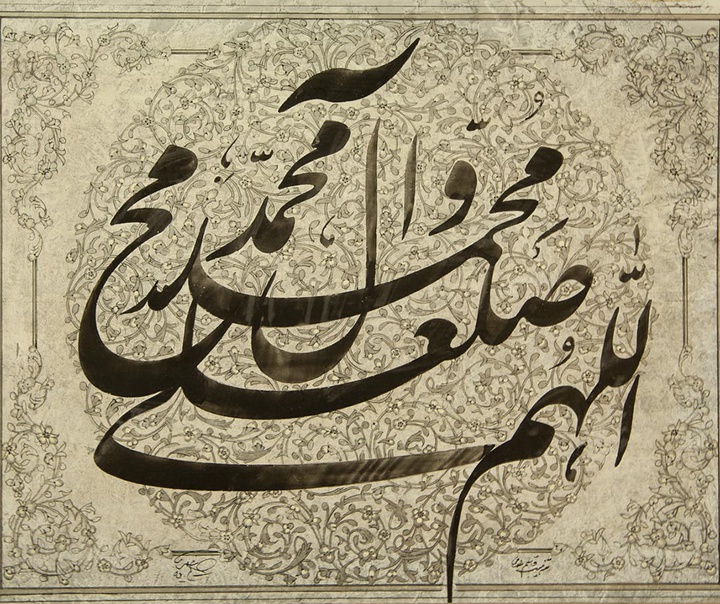 اللّهم صل علی محمد و آل محمّد